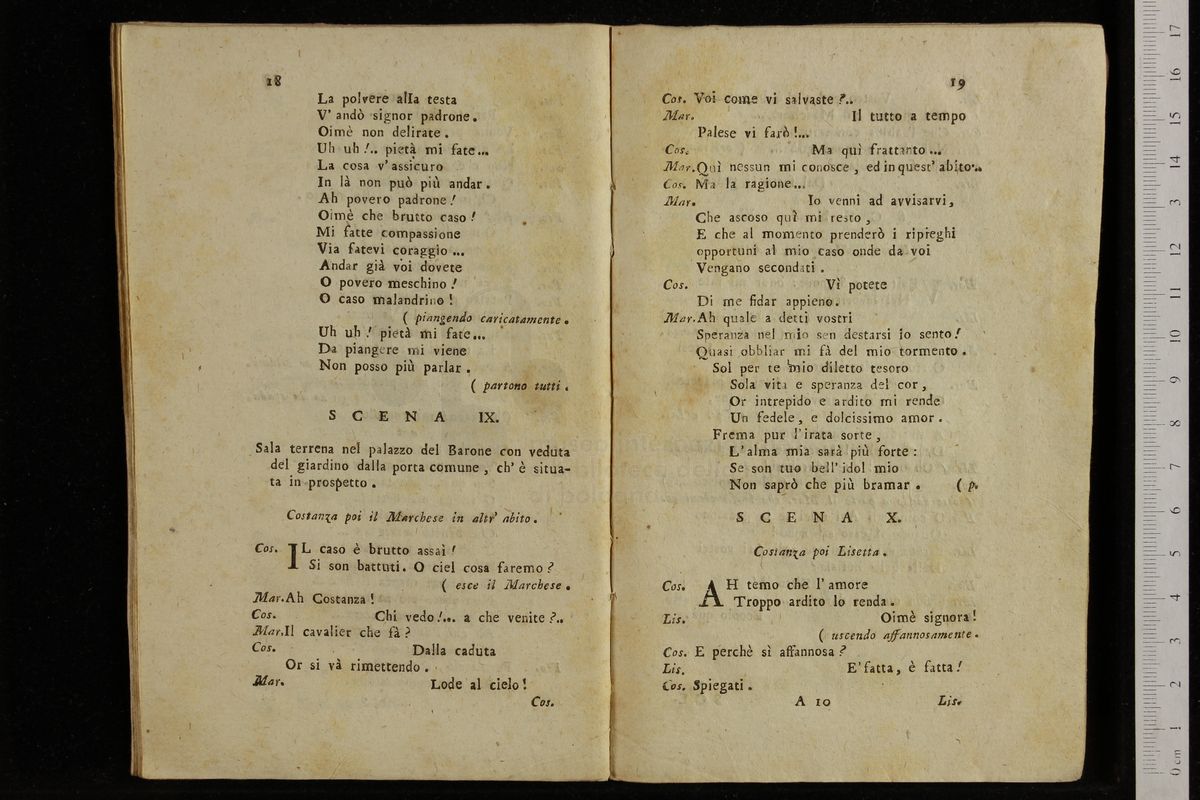 18
La polvere alla testa
V' andò signor padrone.
Oimè non delirate.
Uh uh!.. pietà mi fate...
La cosa v' assicuro
In là non può più andar.
Ah povero padrone!
Oimè che brutto caso!
Mi fatte compassione
Via fatevi coraggio...
Andar già voi dovete
O povero meschino!
O caso malandrino!
( piangendo caricatamente.
Uh uh! pietà mi fate...
Da piangere mi viene
Non posso più parlar.
( partono tutti.
SCENA IX.
Sala terrena nel palazzo del Barone con veduta
del giardino dalla porta comune, ch' è situa-
ta in prospetto.
Costanza poi il Marchese in altr' abito.
Cos. IL caso è brutto assai!
Si son battuti. O ciel cosa faremo?
( esce il Marchese.
Mar. Ah Costanza!
Cos. Chi vedo!... a che venite?..
Mar. Il cavalier che fà?
Cos. Dalla caduta
Or si và rimettendo.
Mar. Lode al cielo!
Cos.
19
Cos. Voi come vi salvaste?..
Mar. Il tutto a tempo
Palese vi farò!...
Cos. Ma quì frattanto...
Mar. Quì nessun mi conosce, ed in quest' abito...
Cos. Ma la ragione...
Mar. Io venni ad avvisarvi,
Che ascoso quì mi resto,
E che al momento prenderò i ripieghi
opportuni al mio caso onde da voi
Vengano secondati.
Cos. Vi potete
Di me fidar appieno.
Mar. Ah quale a detti vostri
Speranza nel mio sen destarsi io sento!
Quasi obbliar mi fà del mio tormento.
Sol per te mio diletto tesoro
Sola vita e speranza del cor,
Or intrepido e ardito mi rende
Un fedele, e dolcissimo amor.
Frema pur l'irata sorte,
L'alma mia sarà più forte:
Se son tuo bell' idol mio
Non saprò che più bramar. ( p.
SCENA X.
Costanza poi Lisetta.
Cos. AH temo che l'amore
Troppo ardito lo renda.
Lis. Oimè signora!
( uscendo affannosamente.
Cos. E perchè sì affannosa?
Lis. E' fatta, è fatta!
Cos. Spiegati.
A 10 Lis.
0 cm 1 2 3 4 5 6 7 8 9 10 11 12 13 14 15 16 17